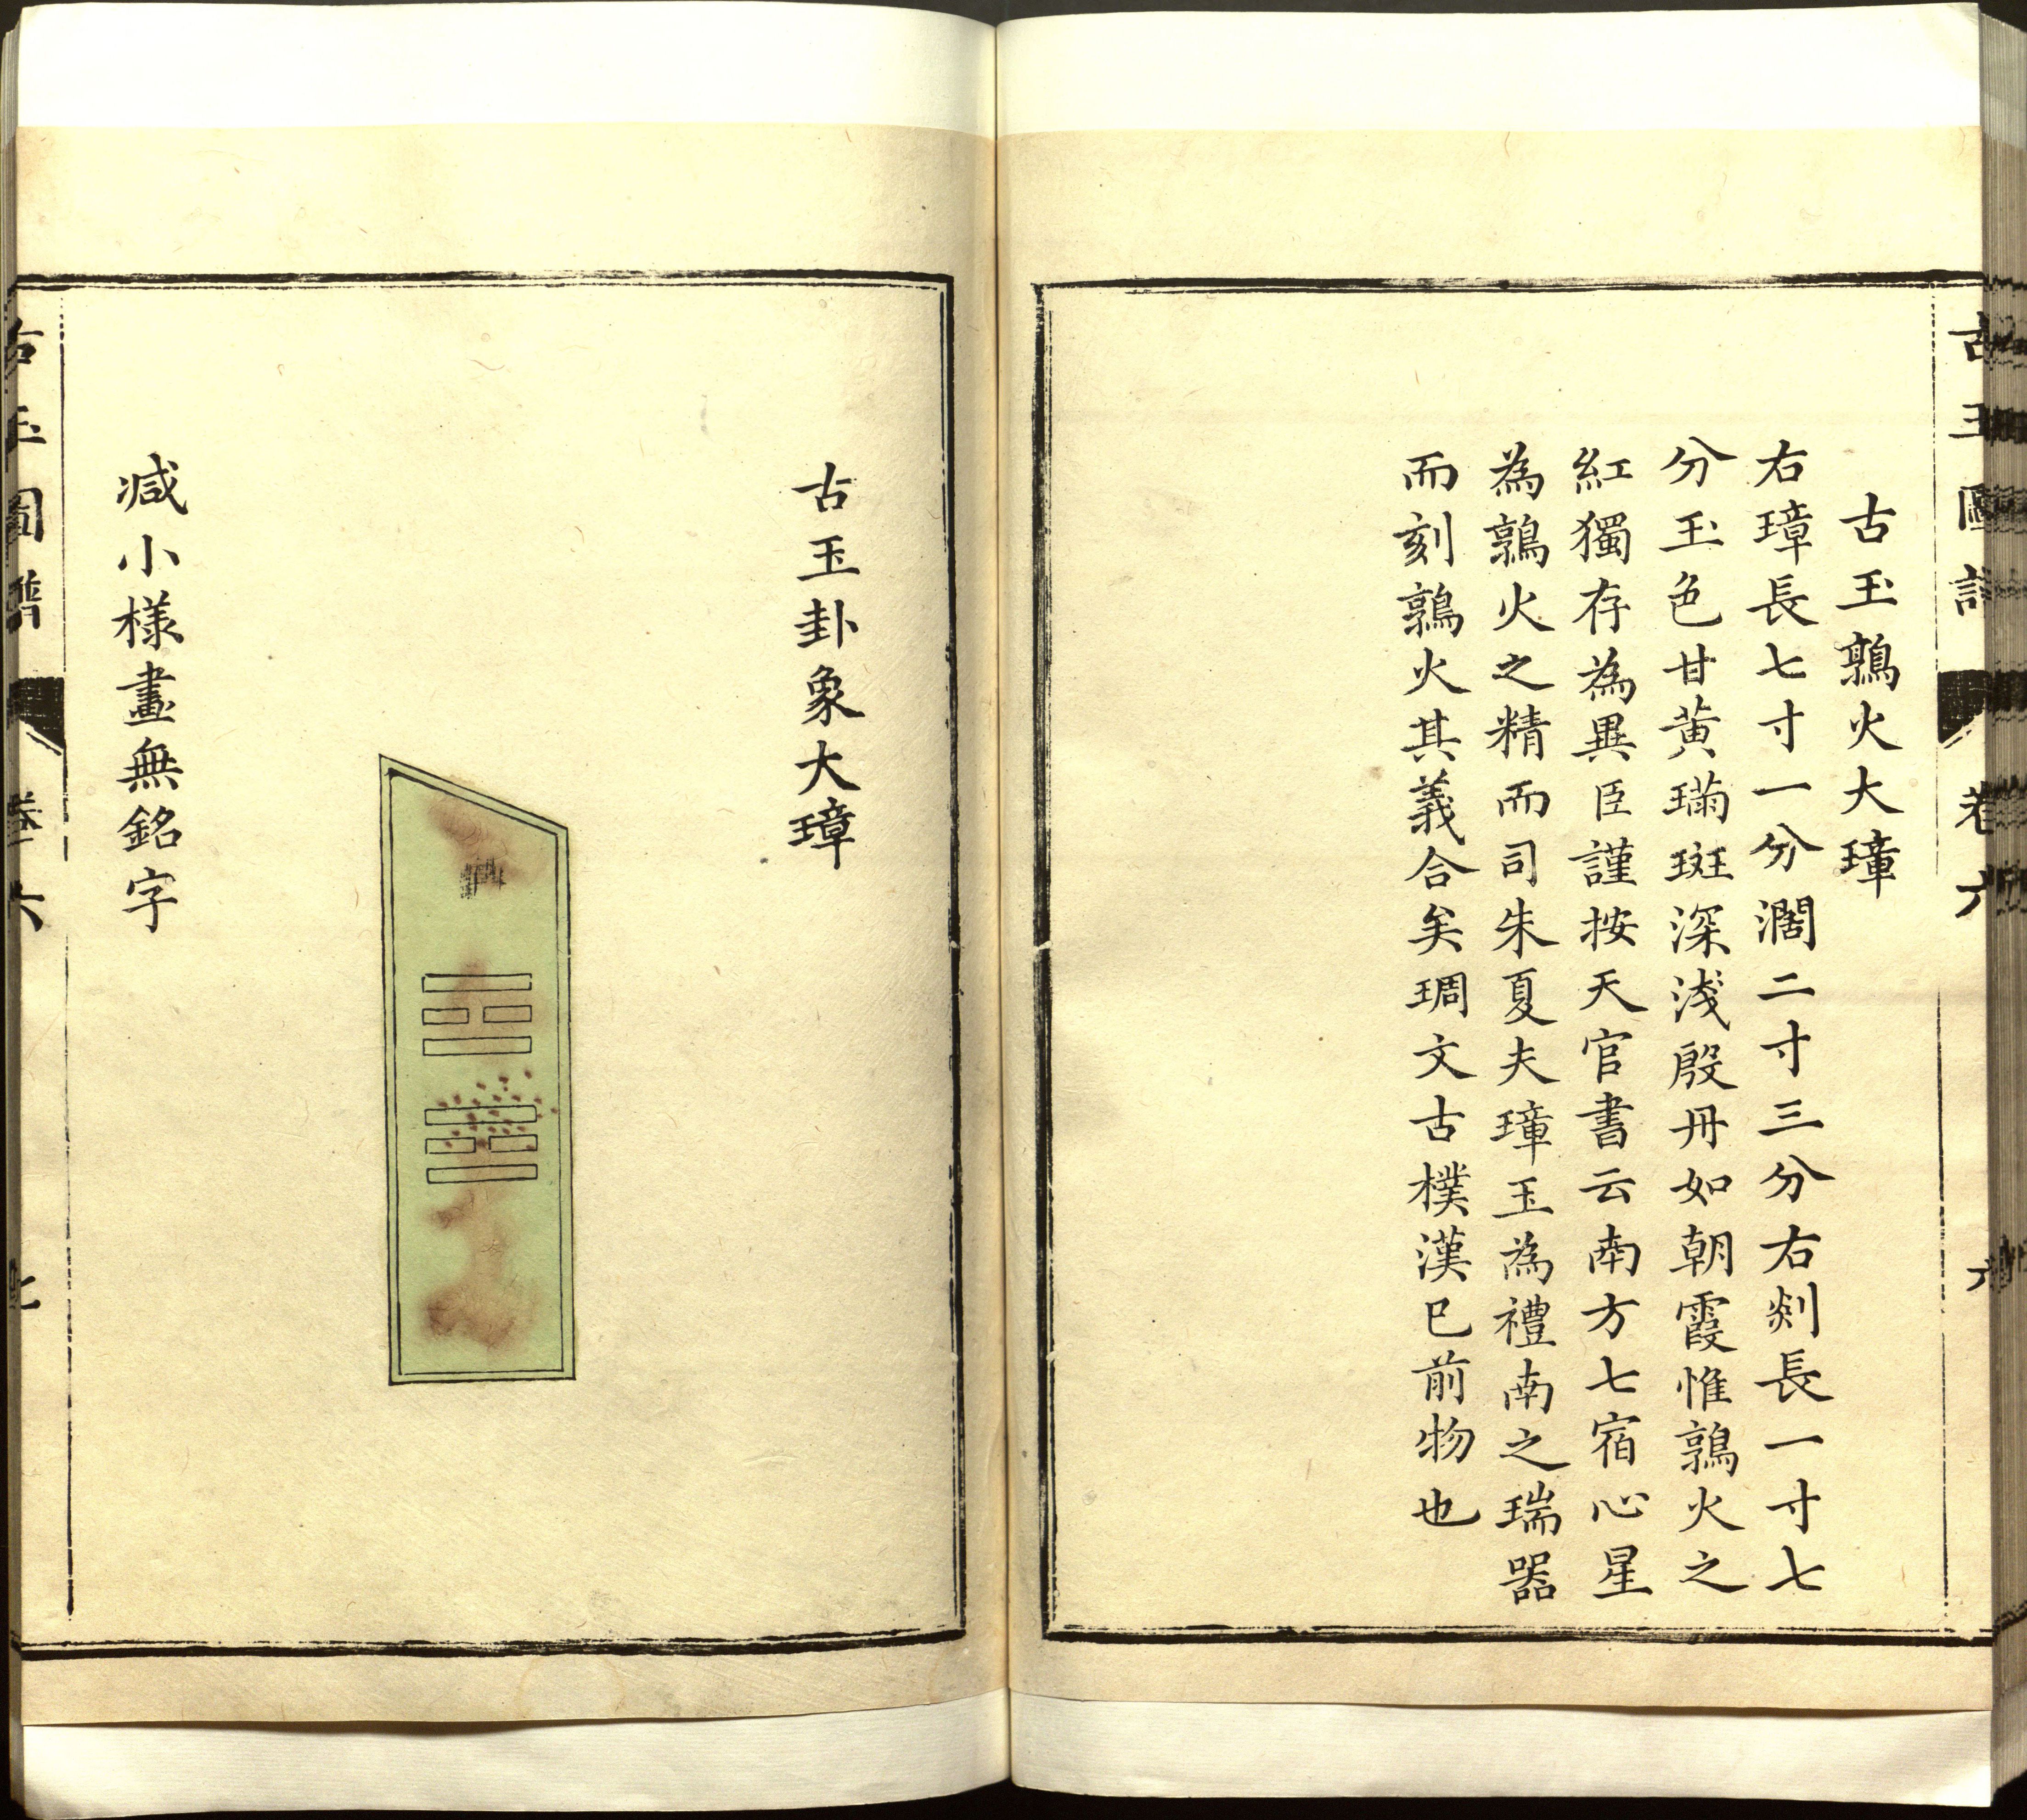 古玉圖譜 卷六 六
古玉鶉火大璋
右璋長七寸一分濶二寸三分右剡長一寸七
分玉色甘黄璊斑深淺殷丹如朝霞惟鶉火之
紅獨存為異臣謹按天官書云南方七宿心星
為鶉火之精而司朱夏夫璋玉為禮南之瑞器
而刻鶉火其義合矣琱文古樸漢已前物也
古玉卦象大璋
减小様畫無銘字
古玉圖譜 卷六 七